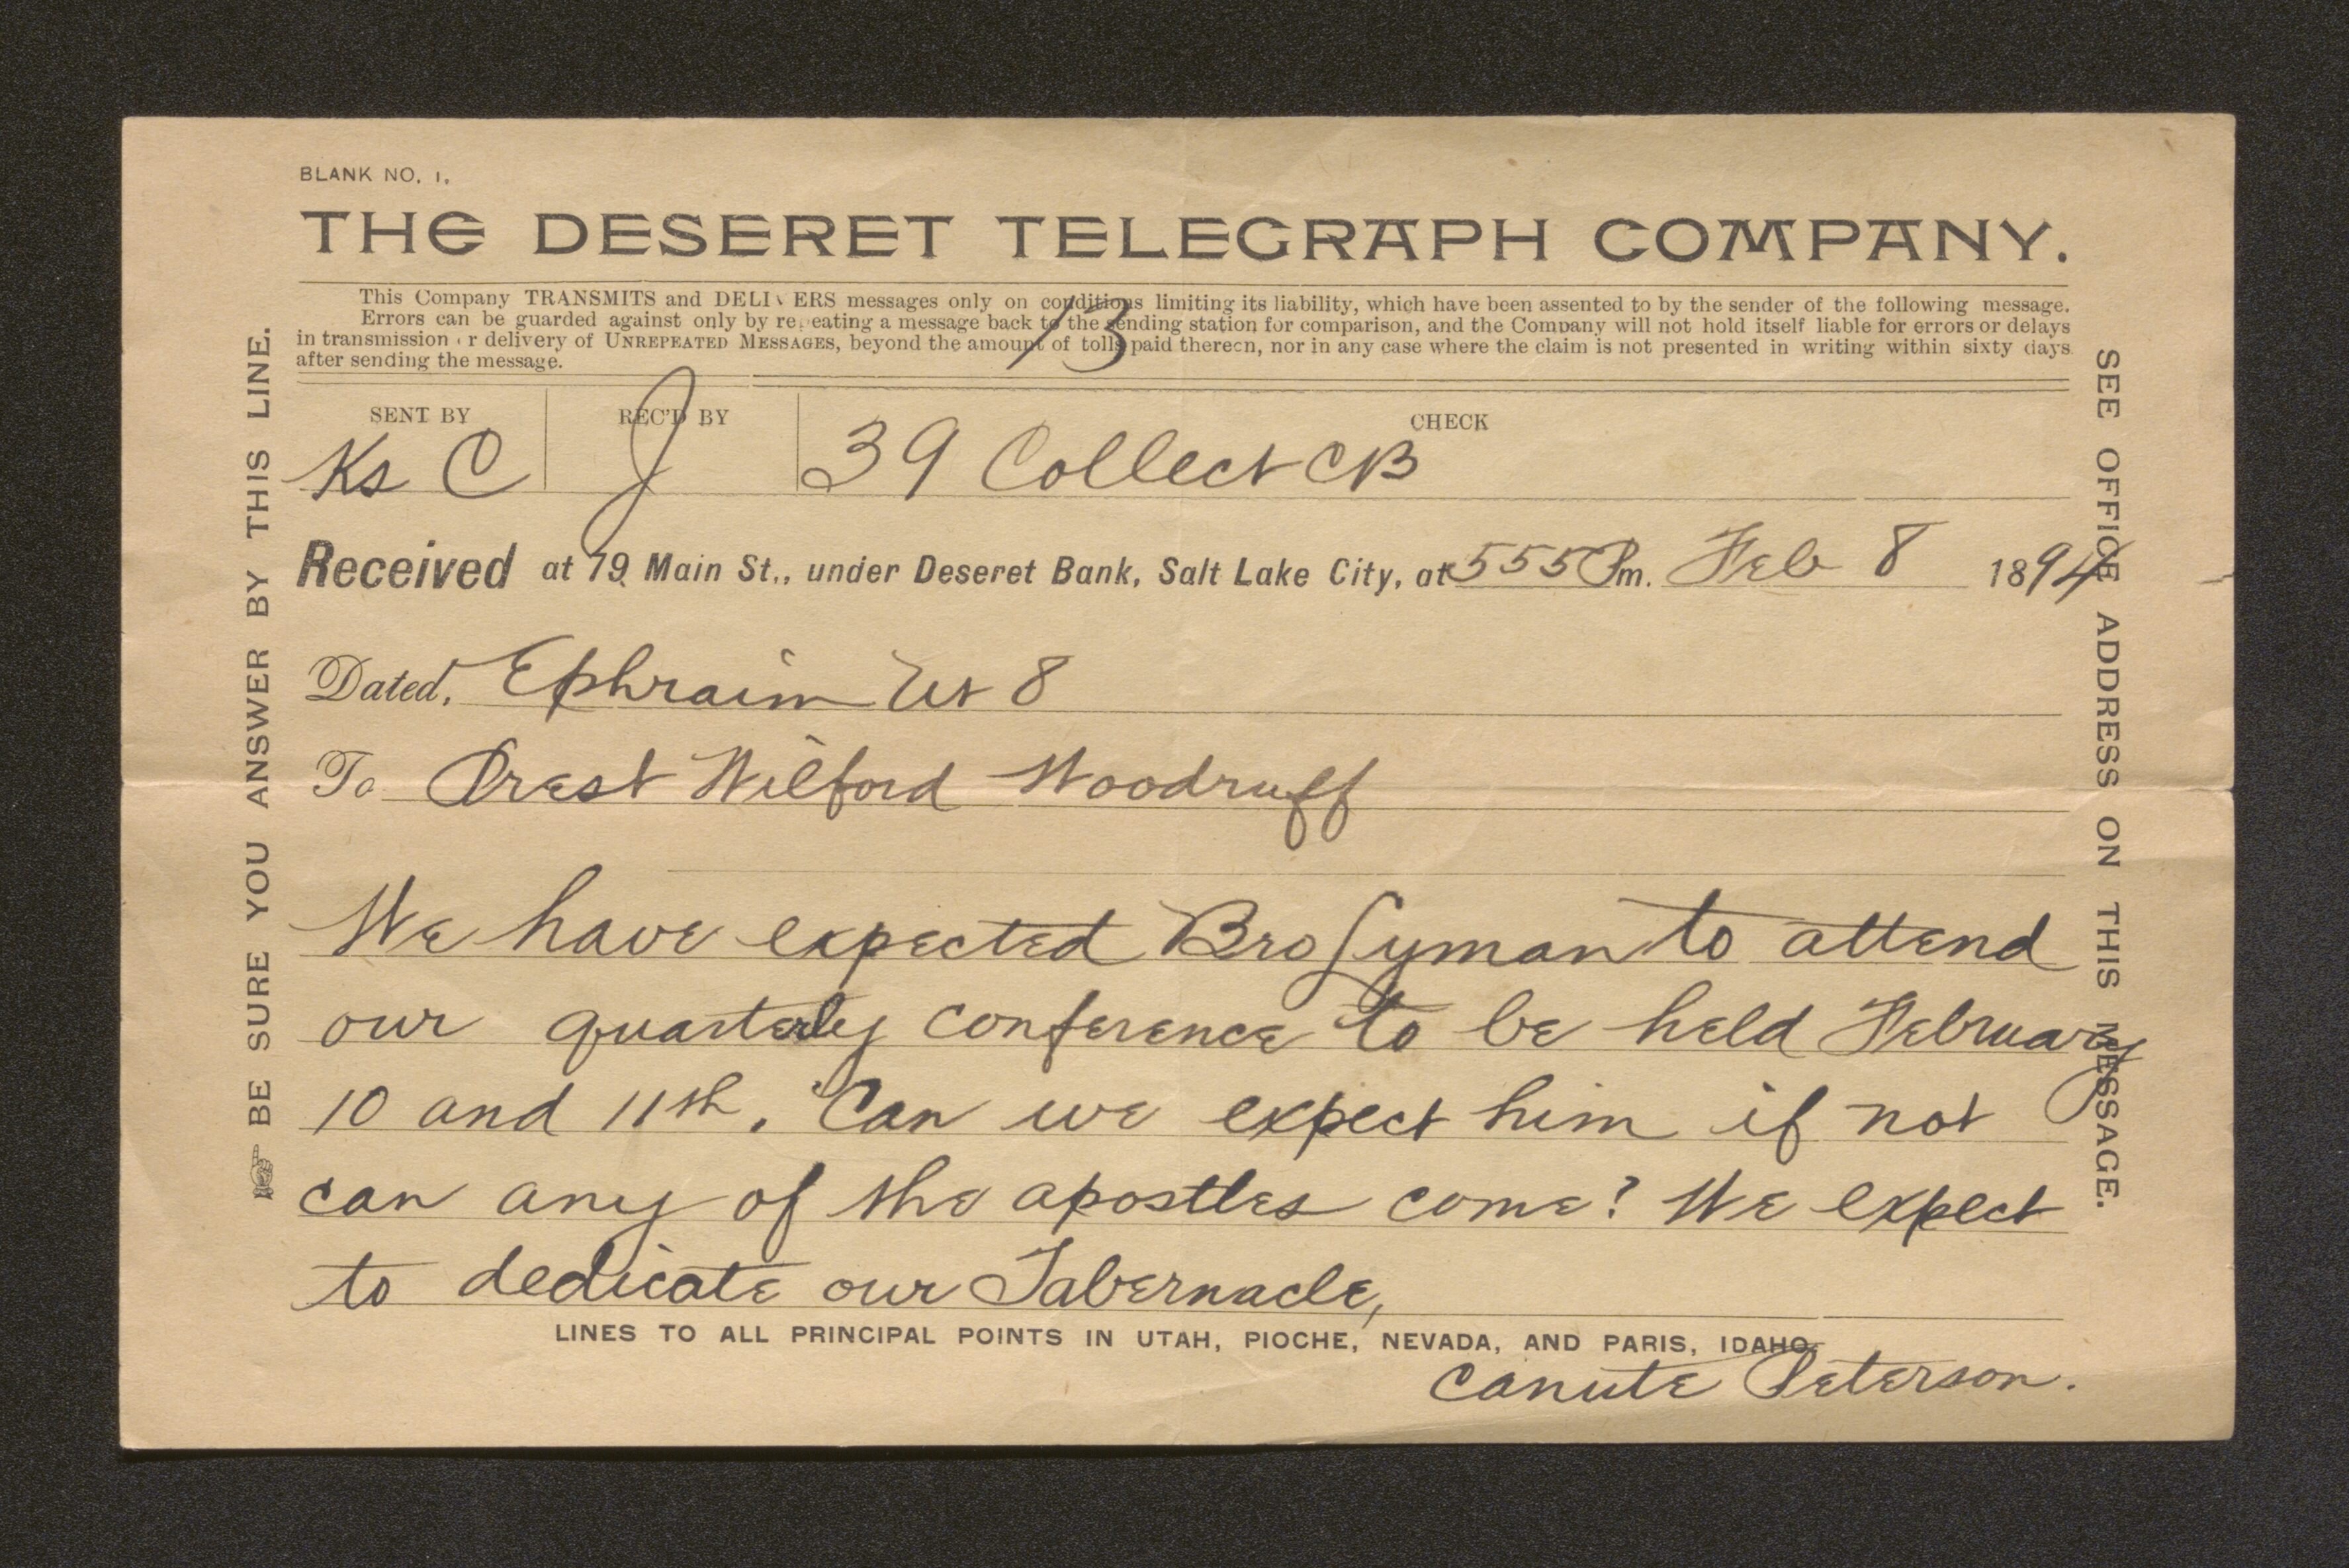 BLANK NO. 1.
THE DESERET TELEGRAPH COMPANY.
This Company TRANSMITS and DELIVERS messages only on conditions limiting its liability, which have been assented to by the sender of the following message.
Errors can be guarded against only by repeating a message back to the sending station for comparison, and the Company will not hold itself liable for errors or delays
in transmission or delivery of UNREPEATED MESSAGES, beyond the amount of tolls paid thereon, nor in any case where the claim is not presented in writing within sixty days
after sending the message.
13
SENT BY REC'D BY CHECK
Ks C J 39 Collect CB
Received at 79 Main St., under Deseret Bank, Salt Lake City, at 555 Pm. Feb 8 1894
Dated, Ephraim Ut 8
To Prest Wilford Woodruff
We have expected Bro Lyman to attend
our quarterly conference to be held February
10 and 11th. Can we expect him if not
can any of the apostles come? We expect
to dedicate our Tabernacle,
LINES TO ALL PRINCIPAL POINTS IN UTAH, PIOCHE, NEVADA, AND PARIS, IDAHO.
Canute Peterson.
BE SURE YOU ANSWER BY THIS LINE.
SEE OFFICE ADDRESS ON THIS MESSAGE.